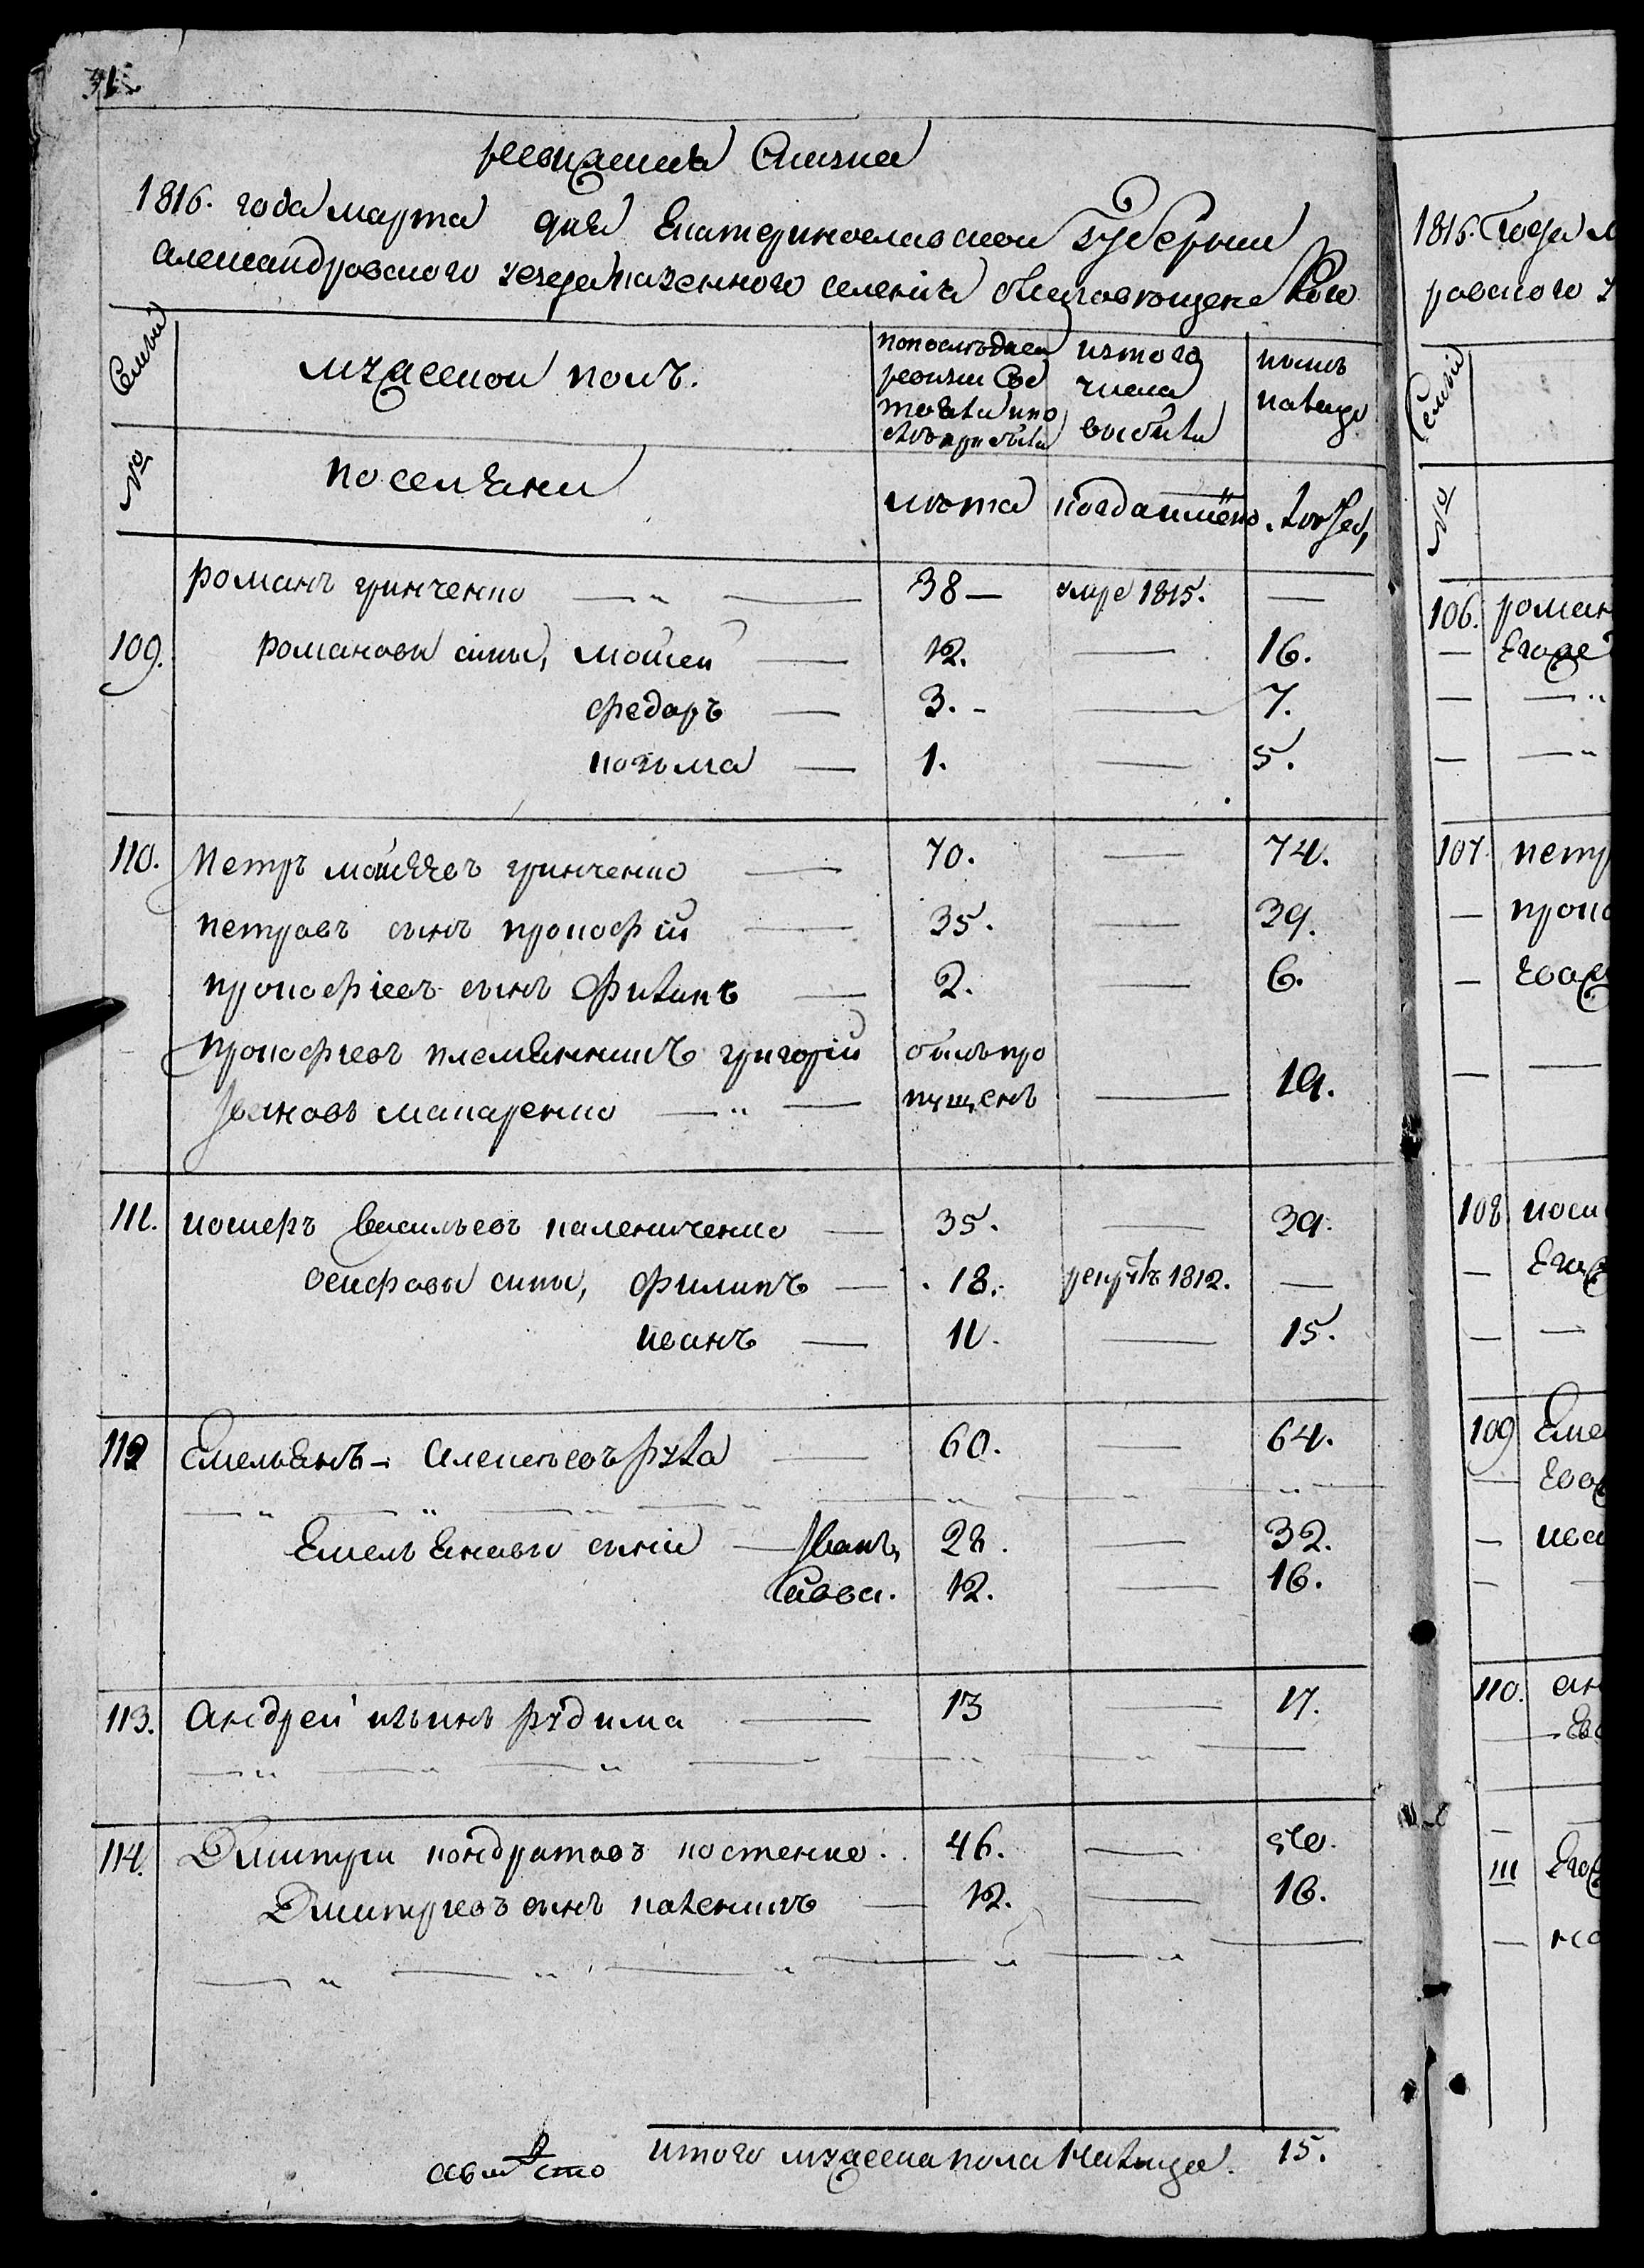 ревизская Сказка
1816. года марта дня Екатеринославской губернии
Александровского уезда казенного селения
Семьи
мужеской полъ.
по последней
ревизии Со
стояло и по
слѣ прибыло
изтого
числа
выбыло
нынѣ
налицо
№
поселяни
лѣта
когда имено
лѣта
романъ гринченко 38 умре 1815. —
109. романовы сины, мойсей 12. — 16.
федоръ 3. — 7.
козьма 1. — 5.
110. петръ мойсѣевъ гринченко 70. — 74.
петровъ сынъ прокофій 35. — 39.
прокофіевъ сынъ Филипъ 2. — 6.
прокофиевъ племянникъ григорій былъ про
Ивановъ макаренко пущенъ — 19.
111. иосифъ васильевъ палениченко 35. — 39.
осифовы сины, филипъ 18. рекрутъ 1812. —
иванъ 11. — 15.
112 Емельянъ Алексѣевъ рула 60. — 64.
Емельяновы сини Иванъ, 28. — 32.
Савва. 12. — 16.
113. Андрей ильинъ рудима 13 — 17.
114. Дмитри кондратовъ костенко. 46. — 50.
Дмитриевъ сынъ каленикъ 12. — 16.
итого мужеска пола налицо. 15.
1816. года м
ровского у
Семьи
№
106. роман
107. петр
проко
108 иоси
109 Еме
ива
110. ан
111